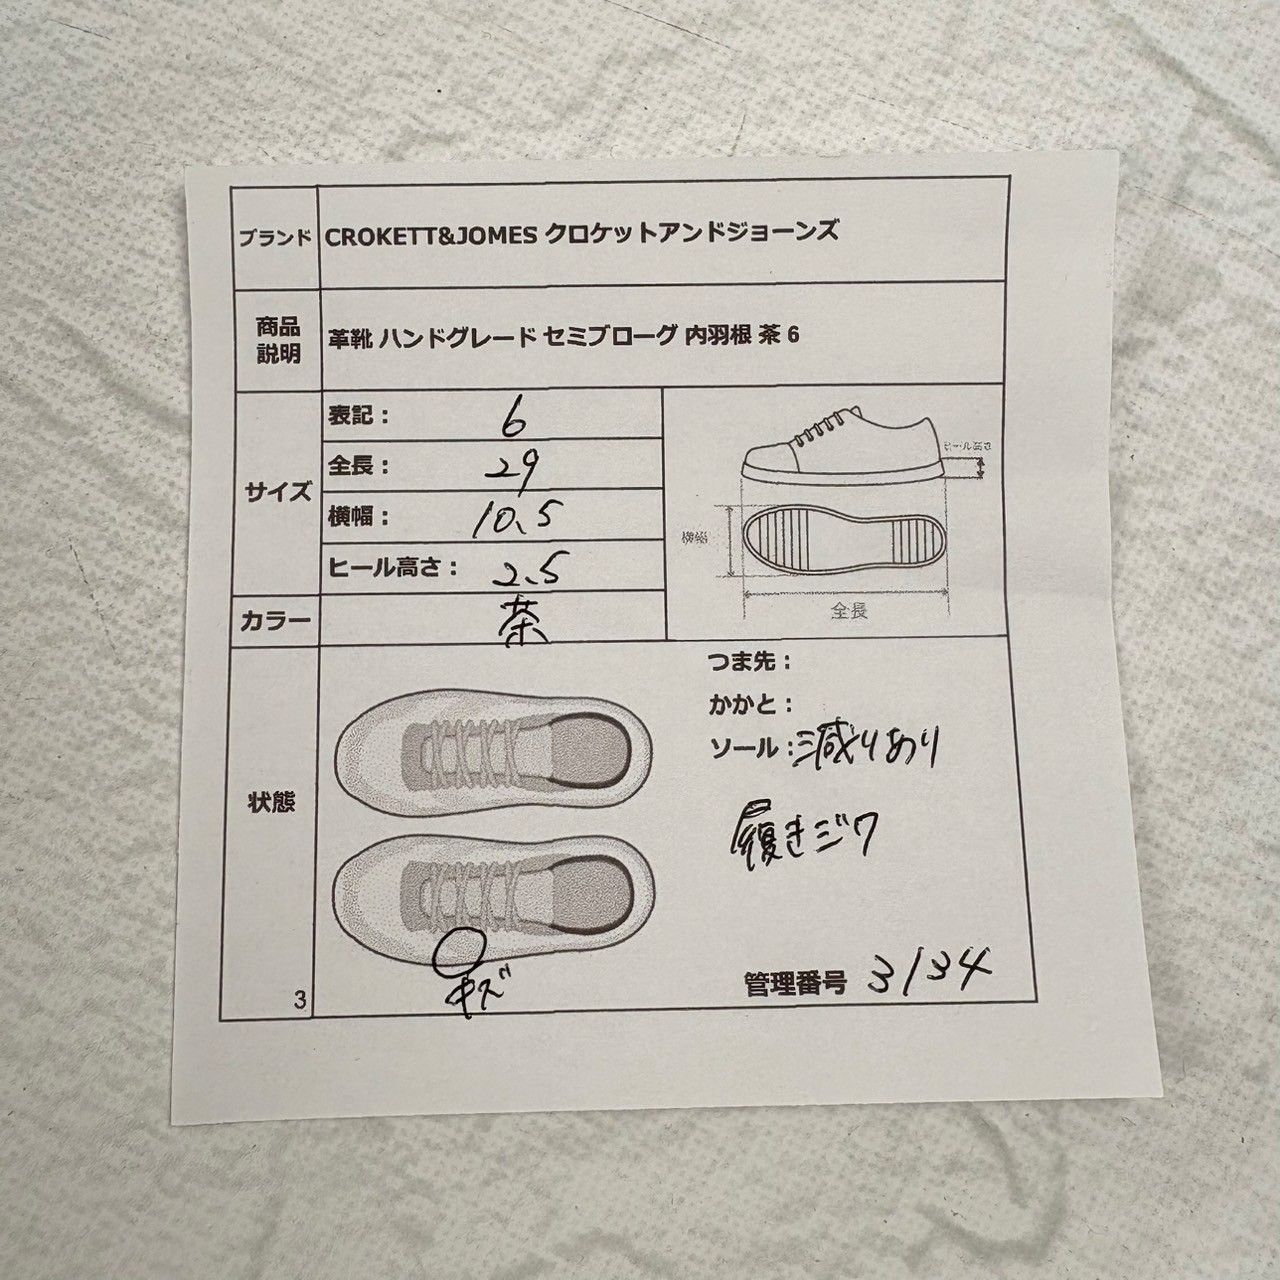 ブランド CROKETT&JOMES クロケットアンドジョーンズ
商品説明 革靴 ハンドグレード セミブローグ 内羽根 茶 6
サイズ
表記： 6
全長： 29
横幅： 10.5
ヒール高さ： 2.5
ヒール高さ
横幅
全長
カラー 茶
状態
つま先：
かかと：
ソール：減りあり
履きジワ
キズ
管理番号 3134
3